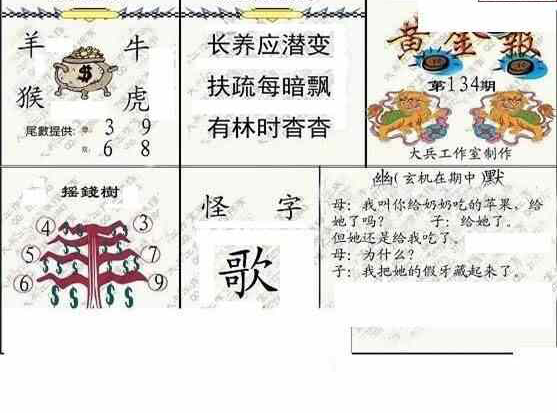 羊 牛
猴 虎
尾數提供: 3 9
6 8
长养应潜变
扶疏每暗飘
有林时杳杳
黄金報
第134期
大兵工作室制作
摇錢樹
④ ③
⑤ ⑦
⑥ ⑨
怪 字
歌
幽(玄机在期中 默
母：我叫你给奶奶吃的苹果、给
她了吗？ 子：给她了。
但她还是给我吃了。
母：为什么？
子：我把她的假牙藏起来了